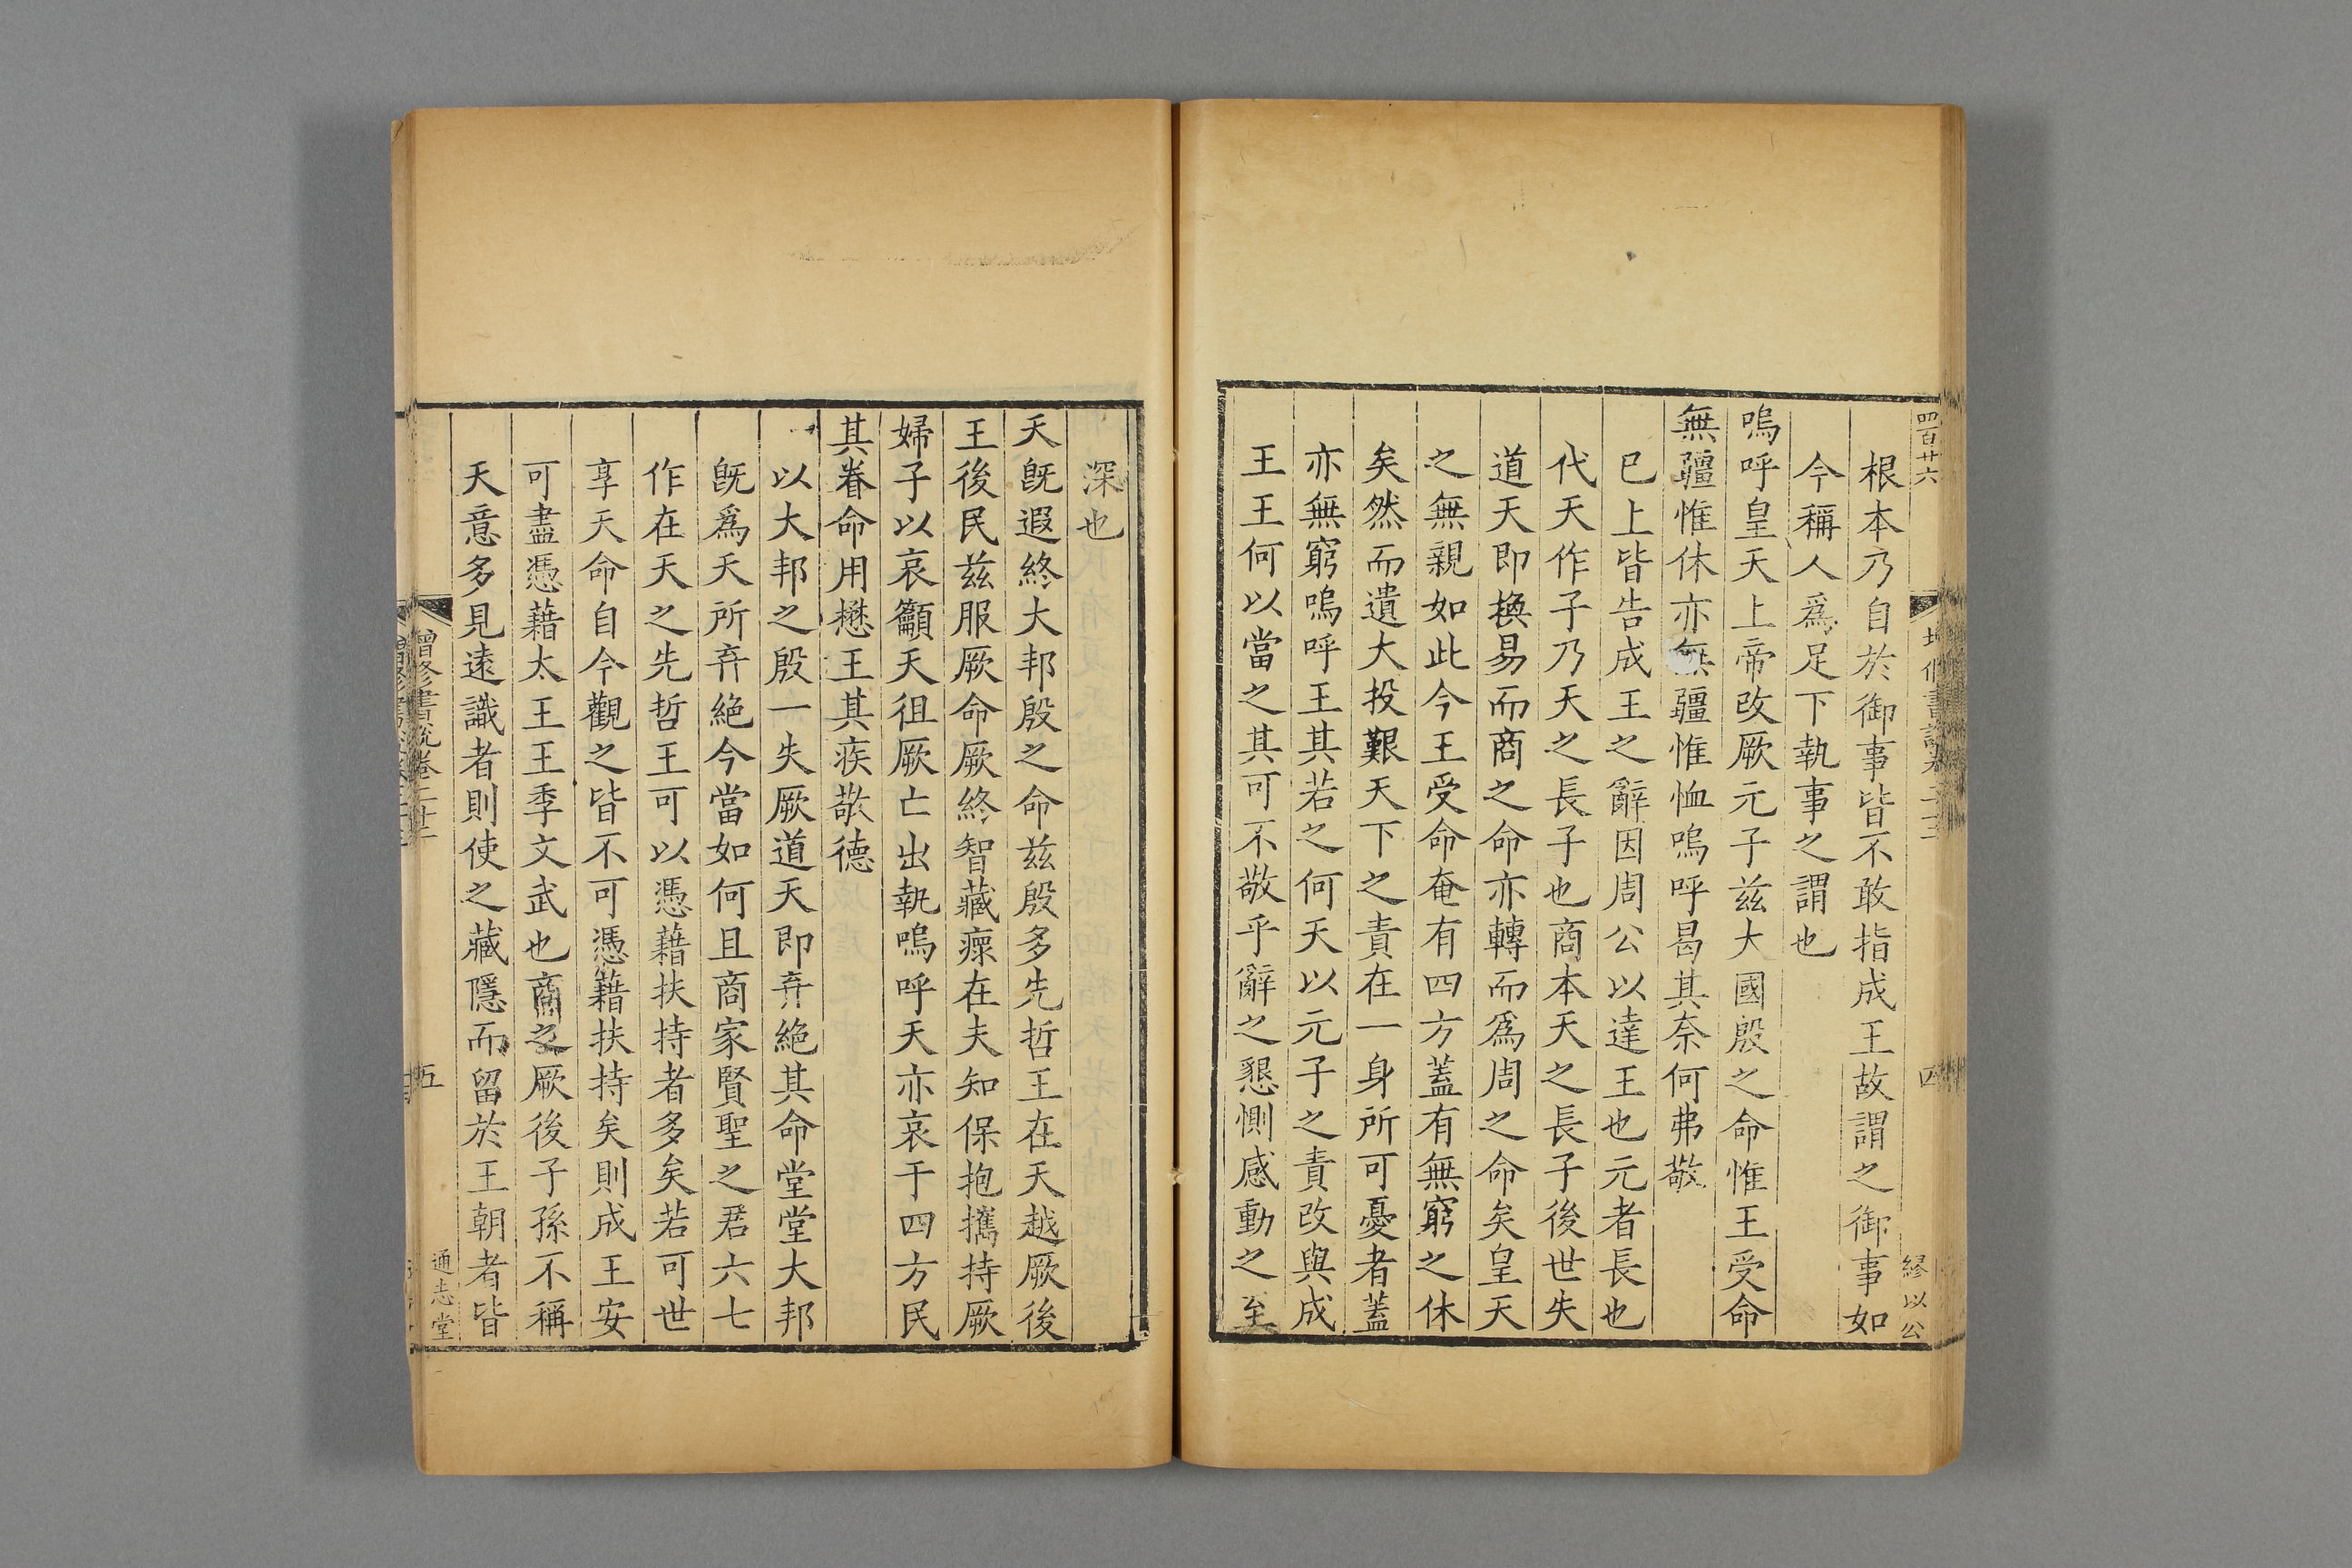 四百廿六
四
繆以公
根本乃自於御事皆不敢指成王故謂之御事如
今稱人爲足下執事之謂也
嗚呼皇天上帝改厥元子兹大國殷之命惟王受命
無疆惟休亦無疆惟恤嗚呼曷其奈何弗敬
已上皆告成王之辭因周公以達王也元者長也
代天作子乃天之長子也商本天之長子後世失
道天即換易而商之命亦轉而爲周之命矣皇天
之無親如此今王受命奄有四方蓋有無窮之休
矣然而遺大投艱天下之責在一身所可憂者蓋
亦無窮嗚呼王其若之何天以元子之責改與成
王王何以當之其可不敬乎辭之懇惻感動之至
深也
天旣遐終大邦殷之命兹殷多先哲王在天越厥後
王後民兹服厥命厥終智藏瘝在夫知保抱攜持厥
婦子以哀籲天徂厥亡出執嗚呼天亦哀于四方民
其眷命用懋王其疾敬德
以大邦之殷一失厥道天即弃絶其命堂堂大邦
旣爲天所弃絶今當如何且商家賢聖之君六七
作在天之先哲王可以憑藉扶持者多矣若可世
享天命自今觀之皆不可憑藉扶持矣則成王安
可盡憑藉太王王季文武也商之厥後子孫不稱
天意多見遠識者則使之藏隱而留於王朝者皆
增修書說卷二十三
五
通志堂